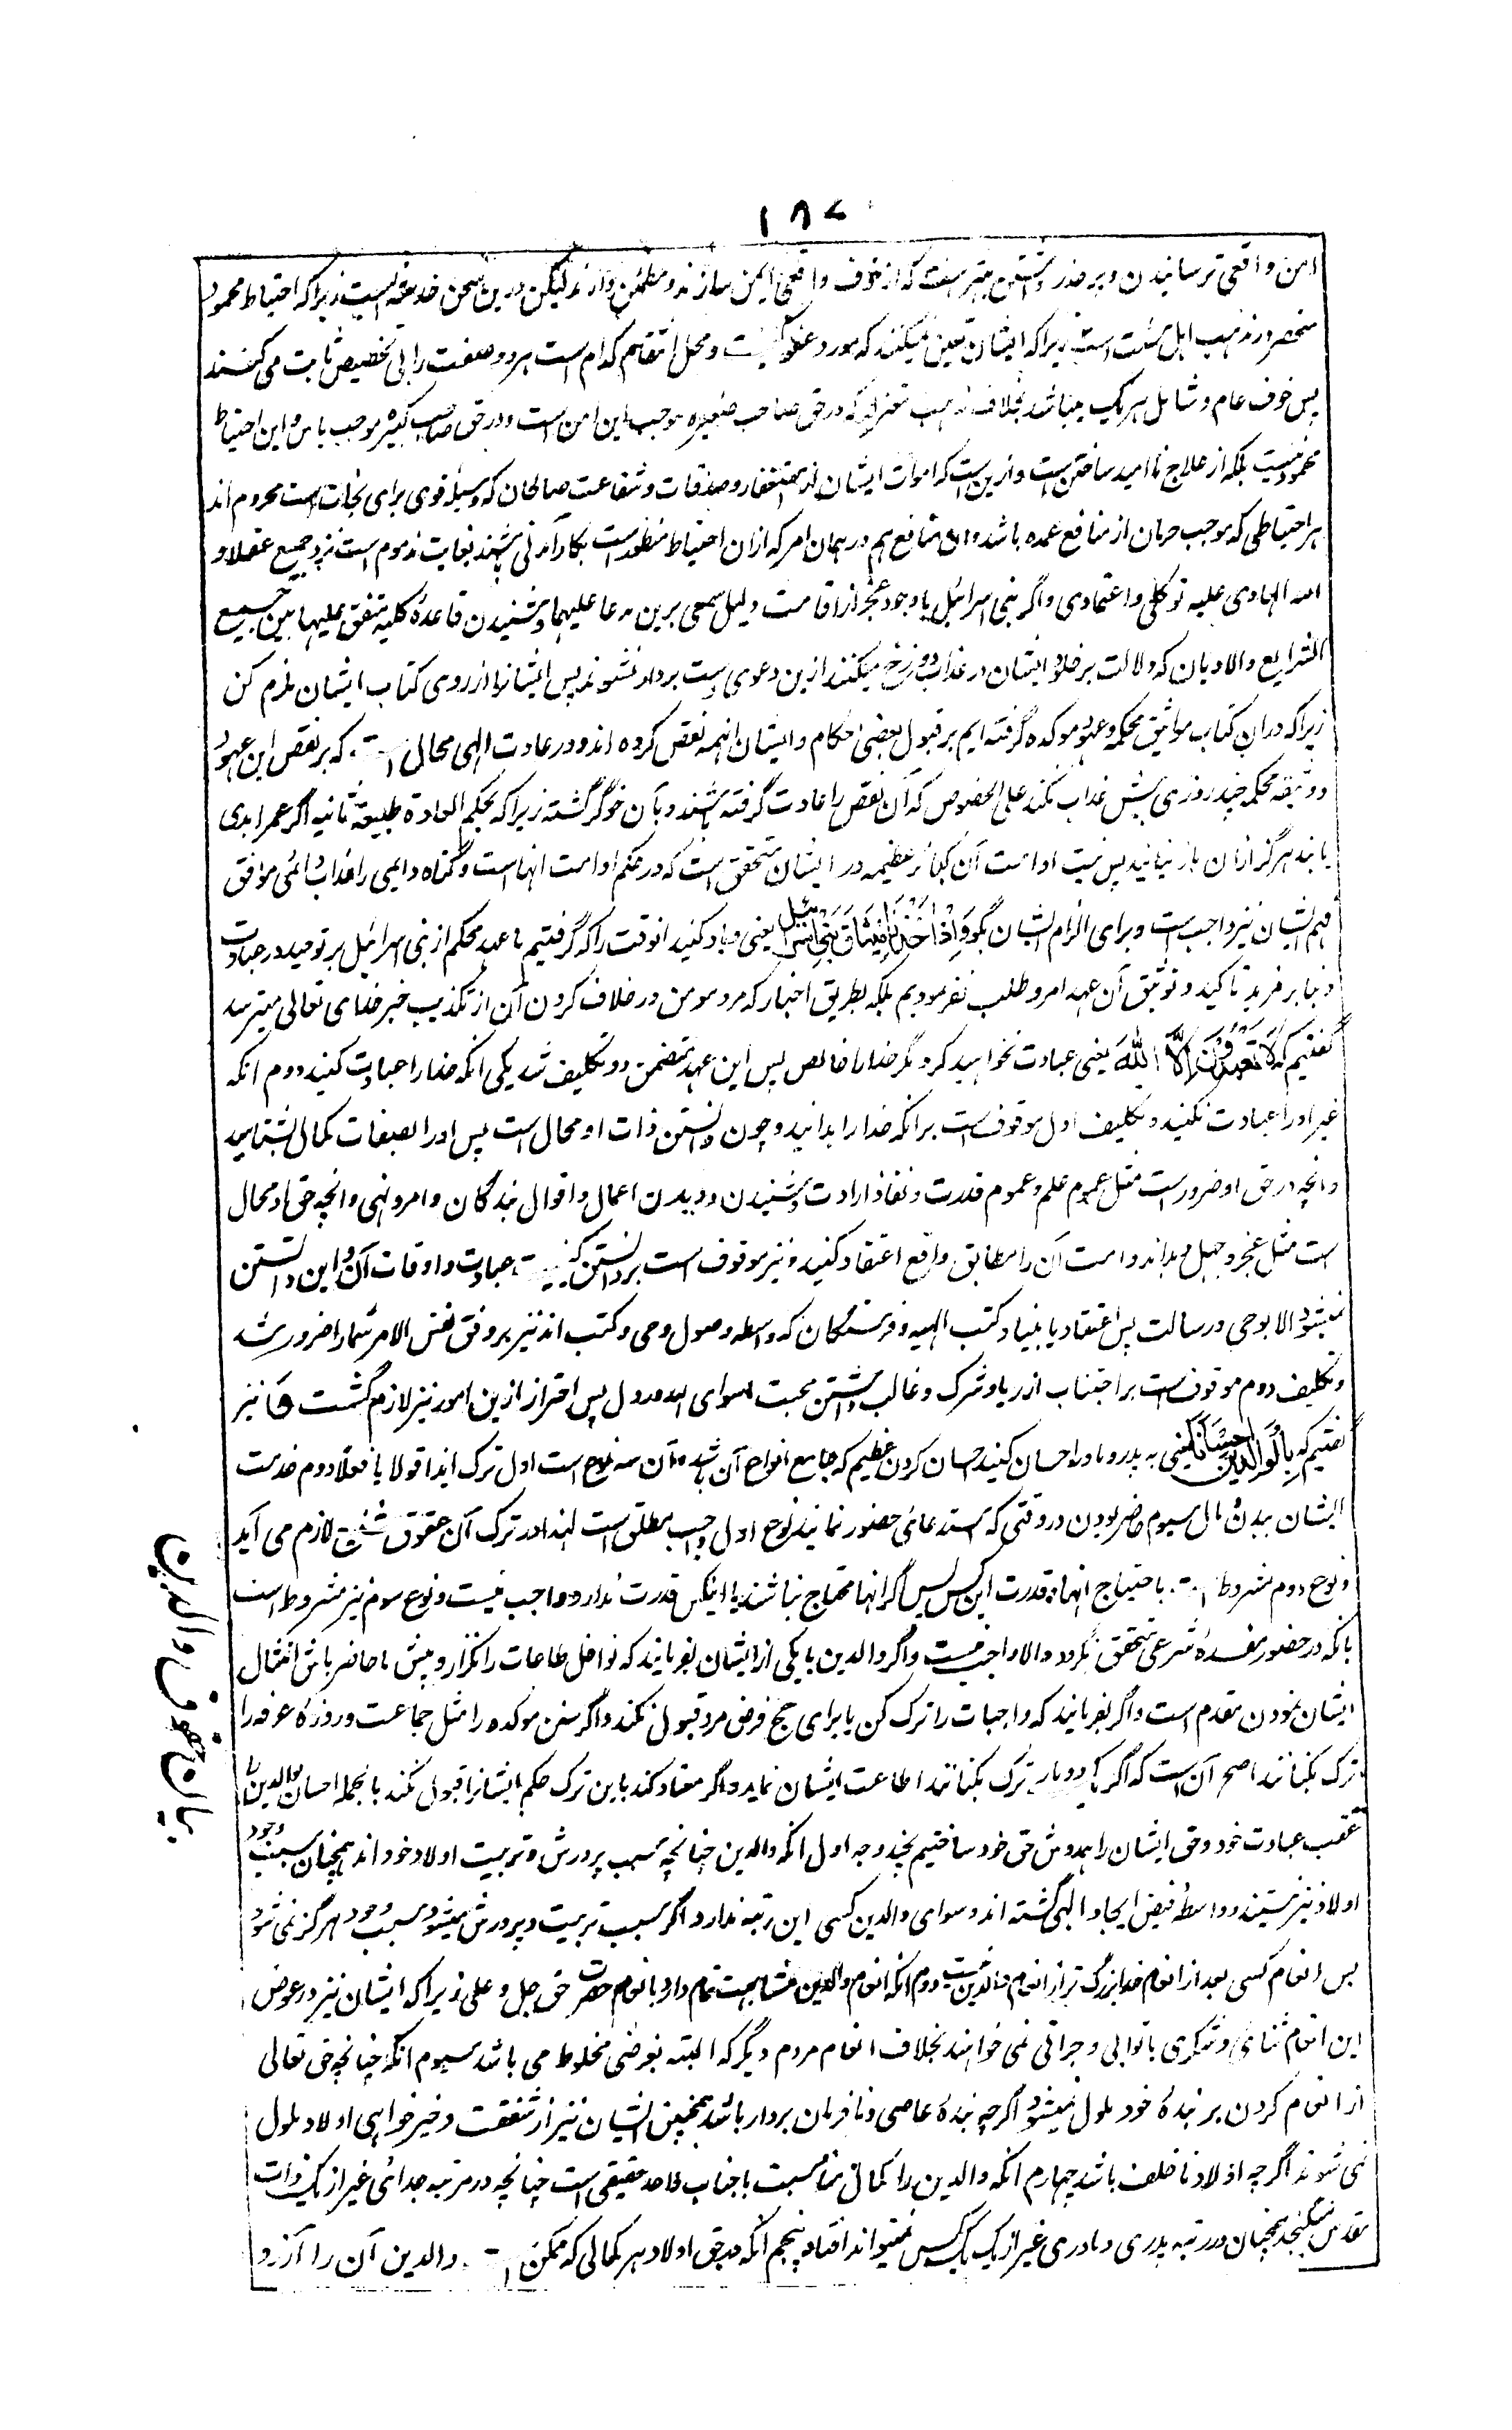 ۱۸۷
امن واقعی ترسانیدن و بر حذر داشتن بهتر است که از خوف واقعی ایمن سازند و مطمئن دارند لیکن درین سخن خدشه است زیرا که احتیاط محمود
منحصر در مذهب اهل سنت است زیرا که ایشان تعین نمیکنند که مورد عفو کیست و محل انتقام کدام است هر دو صفت را بی تخصیص ثابت می کنند
پس خوف عام و شامل هر یک میباشد بخلاف مذهب معتزله که در حق صاحب صغیره موجب این امن است و در حق صاحب کبیره موجب یاس و این احتیاط
محمود نیست بلکه از علاج ناامید ساختن است و ازین است که اموات ایشان از استغفار و صدقات و شفاعت صالحان که وسیله قوی برای نجات است محروم اند
هر احتیاطی که موجب حرمان از منافع عمده باشد و آن منافع هم در همان امر که ازان احتیاط منظور است بکار آمدنی باشند بغایت مذموم است نزد جمیع عقلا و
الله الهادی علیه توکلی و اعتمادی و اگر بنی اسرائیل با وجود عجز از اقامت دلیل سمعی برین مدعا علیهما و شنیدن قاعدۀ کلیه متفق علیها بین جمیع
الشرایع والادیان که دلالت بر خلود ایشان در عذاب دوزخ میکند ازین دعوی دست بردار نشوند پس ایشانرا از روی کتاب ایشان ملزم کن
زیرا که دران کتاب مواثیق محکمه و عهود موکده گرفته ایم بر قبول بعضی احکام و ایشان انهمه نقض کرده اند و در عادت الهی محال است که بر نقض این عهود
و وثیقه محکمه چند روزی بیش عذاب نکند علی الخصوص که آن نقض را عادت گرفته باشند و بآن خوگر گشته زیرا که بحکم العادة طبیعة ثانیه اگر عمر ابدی
یابند هرگز ازان باز نیایند پس نیت ادامت آن کبائر عظیمه در ایشان متحقق است که در حکم ادامت انهاست و گناه دایمی را عذاب دائمی موافق
فهم ایشان نیز واجب است و برای الزام ایشان بگو وَاِذْ اَخَذْنَا مِیْثَاقَ بَنِیْ اِسْرَائِیْلَ یعنی و یاد کنید انوقت را که گرفتیم ما عهد محکم از بنی اسرائیل بر توحید در عبادت
و بنا بر مزید تاکید و توثیق آن عهد امر و طلب نفرمودیم بلکه بطریق اخبار که مرد مومن در خلاف کردن آن از تکذیب خبر خدای تعالی میترسد
گفتیم که لَا تَعْبُدُوْنَ اِلَّا اللهَ یعنی عبادت نخواهید کرد مگر خدا را خالص پس این عهد متضمن دو تکلیف شد یکی انکه خدا را عبادت کنید دوم انکه
غیر او را عبادت نکنید و تکلیف اول موقوف است بر انکه خدا را بدانید و چون دانستن ذات او محال است پس او را بصفات کمال بشناسید
و انچه در حق او ضرور است مثل عموم علم و عموم قدرت و نفاذ ارادت و شنیدن و دیدن اعمال و اقوال بندگان و امر و نهی و انچه در حق او محال
است مثل عجز و جهل و بدا و ندامت آن را مطابق واقع اعتقاد کنید و نیز موقوف است بر دانستن کیفیت عبادت و اوقات آن و این دانستن
نمیشود الا بوحی و رسالت پس اعتقاد بانبیا و کتب الهیه و فرشتگان که واسطه وصول وحی و کتب اند نیز بر وفق نفس الامر شما را ضرور شد
و تکلیف دوم موقوف است بر اجتناب از ریا و شرک و غالب داشتن محبت ماسوای الله در دل پس احتراز ازین امور نیز لازم گشت وَ نیز
گفتیم که بِالْوَالِدَیْنِ اِحْسَانًا یعنی به پدر و مادر احسان کنید احسان کردن عظیم که جامع انواع آن باشد و آن سه نوع است اول ترک ایذا قولا یا فعلا دوم خدمت
ایشان ببدن و مال سیوم حاضر بودن در وقتی که استدعای حضور نمایند نوع اول واجب مطلق است لهذا در ترک آن عقوق لازم می آید
و نوع دوم مشروط است باحتیاج انها و قدرت این کس پس اگر انها محتاج نباشند یا اینکس قدرت ندارد واجب نیست و نوع سوم نیز مشروط است
بانکه در حضور مفسدۀ شرعی متحقق نگردد والا واجب نیست و اگر والدین یا یکی از ایشان بفرمایند که نوافل طاعات را بگذار و پیش ما حاضر باش امتثال
ایشان نمودن مقدم است و اگر بفرمایند که واجبات را ترک کن یا برای حج فرض مرو قبول نکند و اگر سنن موکده را مثل جماعت و روزۀ عرفه را
ترک بکنانند اصح آن است که اگر یکدو بار ترک بکنانند اطاعت ایشان نماید و اگر معتاد کند باین ترک حکم ایشانرا قبول نکند بالجمله احسان بوالدین را
عقب عبادت خود و حق ایشان را همدوش حق خود ساختیم بچند وجه اول انکه والدین چنانچه سبب پرورش و تربیت اولاد خود اند همچنان سبب وجود
اولاد نیز هستند و واسطۀ فیض ایجاد الهی گشته اند و سوای والدین کسی این رتبه ندارد اگر سبب تربیت و پرورش میشود سبب وجود هرگز نمی شود
پس انعام کسی بعد از انعام خدا بزرگ تر از انعام والدین نیست دوم انکه انعام والدین مشابهت تمام دارد بانعام حضرت حق جل و علی زیرا که ایشان نیز در عوض
این انعام ثنای و شکری یا ثوابی و جزائی نمی خواهند بخلاف انعام مردم دیگر که البته بغرضی مخلوط می باشد سیوم انکه چنانچه حق تعالی
از انعام کردن بر بندۀ خود ملول نمیشود اگرچه بندۀ عاصی و نافرمان بردار باشد همچنین ایشان نیز از شفقت و خیر خواهی اولاد ملول
نمی شوند اگرچه اولاد ناخلف باشد چهارم انکه والدین را کمال مناسبت با جناب واحد حقیقی است چنانچه در مرتبه خدائی غیر از یک ذات
مقدس نمیگنجد همچنان در رتبه پدری و مادری غیر از یک یک کس نمیتواند افتاد پنجم انکه در حق اولاد هر کمالی که ممکن است والدین آن را آرزو
بیان حقوق والدین